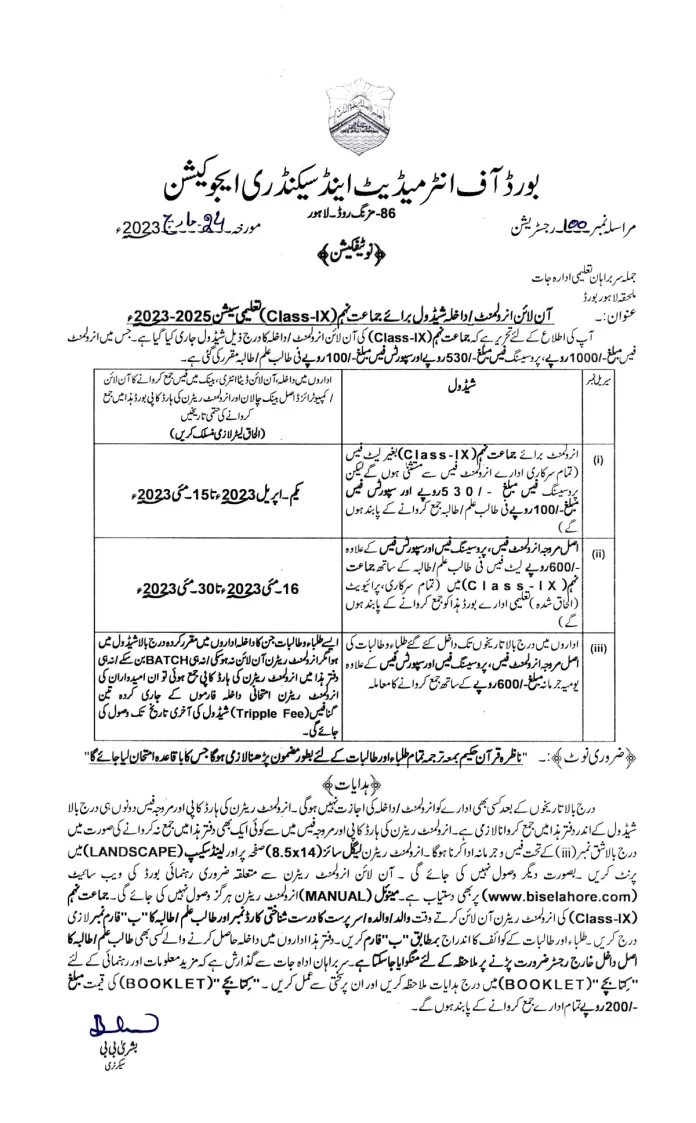 بورڈ آف انٹرمیڈیٹ اینڈ سیکنڈری ایجوکیشن
86-مزنگ روڈ۔لاہور
مراسلہ نمبر 100 رجسٹریشن
مورخہ 24-مارچ 2023ء
﴿نوٹیفکیشن﴾
جملہ سربراہان تعلیمی ادارہ جات
ملحقہ لاہور بورڈ
عنوان:۔ آن لائن انرولمنٹ/داخلہ شیڈول برائے جماعت نہم(Class-IX)تعلیمی سیشن 2025-2023ء
آپ کی اطلاع کے لئے تحریر ہے کہ جماعت نہم(Class-IX) کی آن لائن انرولمنٹ/داخلہ کا درج ذیل شیڈول جاری کیا گیا ہے۔جس میں انرولمنٹ
فیس مبلغ/-1000روپے، پروسیسنگ فیس مبلغ/-530روپے اور سپورٹس فیس مبلغ/-100روپے فی طالب علم/طالبہ مقرر کی گئی ہے۔
سیریل نمبر
شیڈول
اداروں میں داخلہ،آن لائن ڈیٹا انٹری، بینک میں فیس جمع کروانے کا آن لائن
/کمپیوٹرائزڈ اصل بینک چالان اور انرولمنٹ ریٹرن کی ہارڈ کاپی بورڈ ہذا میں جمع
کروانے کی حتمی تاریخیں
(الحاق لیٹر لازمی منسلک کریں)
(i)
انرولمنٹ برائے جماعت نہم(Class-IX)بغیر لیٹ فیس
(تمام سرکاری ادارے انرولمنٹ فیس سے مستثنیٰ ہوں گے لیکن
پروسیسنگ فیس مبلغ /-530روپے اور سپورٹس فیس
مبلغ/-100روپے فی طالب علم/طالبہ جمع کروانے کے پابند ہوں
گے)
یکم-اپریل 2023ء تا 15-مئی 2023ء
(ii)
اصل مروجہ انرولمنٹ فیس، پروسیسنگ فیس اور سپورٹس فیس کے علاوہ
/-600روپے لیٹ فیس فی طالب علم/طالبہ کے ساتھ جماعت
نہم(Class-IX)میں (تمام سرکاری، پرائیویٹ
(الحاق شدہ)تعلیمی ادارے بورڈ ہذا کو جمع کروانے کے پابند ہوں
گے)
16-مئی 2023ء تا 30-مئی 2023ء
(iii)
اداروں میں درج بالا تاریخوں تک داخل کئے گئے طلباء و طالبات کی
اصل مروجہ انرولمنٹ فیس، پروسیسنگ فیس اور سپورٹس فیس کے علاوہ
یومیہ جرمانہ مبلغ/-600روپے کے ساتھ جمع کروانے کا معاملہ
ایسے طلباء و طالبات جن کا داخلہ اداروں میں مقرر کردہ درج بالا شیڈول میں
ہوا مگر انرولمنٹ ریٹرن آن لائن نہ ہو سکی انہ ہی BATCH بن سکے انہ ہی
دفتر ہذا میں انرولمنٹ ریٹرن کی ہارڈ کاپی جمع ہوئی تو ان امیدواران کی
انرولمنٹ ریٹرن امتحانی داخلہ فارموں کے جاری کردہ تین
گنا فیس(Tripple Fee)شیڈول کی آخری تاریخ تک وصول کی
جائے گی۔
﴿ضروری نوٹ﴾:۔ "ناظرہ قرآن حکیم بمعہ ترجمہ تمام طلباء اور طالبات کے لئے بطور مضمون پڑھنا لازمی ہوگا جس کا باقاعدہ امتحان لیا جائے گا"
﴿ہدایات﴾
درج بالا تاریخوں کے بعد کسی بھی ادارے کو انرولمنٹ/داخلہ کی اجازت نہیں ہوگی۔انرولمنٹ ریٹرن کی ہارڈ کاپی اور مروجہ فیس دونوں ہی درج بالا
شیڈول کے اندر دفتر ہذا میں جمع کروانا لازمی ہے۔انرولمنٹ ریٹرن کی ہارڈ کاپی اور مروجہ فیس میں سے کوئی ایک بھی دفتر ہذا میں جمع نہ کروانے کی صورت میں
درج بالا شق نمبر (iii) کے تحت فیس و جرمانہ ادا کرنا ہوگا۔انرولمنٹ ریٹرن لیگل سائز (8.5x14) صفحہ پر اور لینڈ سکیپ (LANDSCAPE) میں
پرنٹ کریں ۔بصورت دیگر وصول نہیں کی جائے گی ۔ آن لائن انرولمنٹ ریٹرن سے متعلقہ ضروری ہدایات بورڈ کی ویب سائیٹ
(www.biselahore.com) پر بھی دستیاب ہے۔ مینوئل (MANUAL) انرولمنٹ ریٹرن ہرگز وصول نہیں کی جائے گی۔ جماعت نہم
(Class-IX) کی انرولمنٹ ریٹرن آن لائن کرتے وقت والد/والدہ/سرپرست کا درست شناختی کارڈ نمبر اور طالب علم/طالبہ کا "ب" فارم نمبر لازمی
درج کریں۔ طلباء اور طالبات کے کوائف کا اندراج بمطابق "ب" فارم کریں۔دفتر ہذا اداروں میں داخلہ حاصل کرنے والے کسی بھی طالب علم/طالبہ کا
اصل داخل خارج رجسٹر ضرورت پڑنے پر ملاحظہ کے لئے منگوایا جاسکتا ہے۔سربراہان ادارہ جات سے گذارش ہے کہ مزید معلومات اور رہنمائی کے لئے
"کتابچے"(BOOKLET) میں درج ہدایات ملاحظہ کریں اور ان پر سختی سے عمل کریں ۔ "کتابچے"(BOOKLET) کی قیمت مبلغ
/-200روپے تمام ادارے جمع کروانے کے پابند ہوں گے۔
بشریٰ بی بی
سیکرٹری